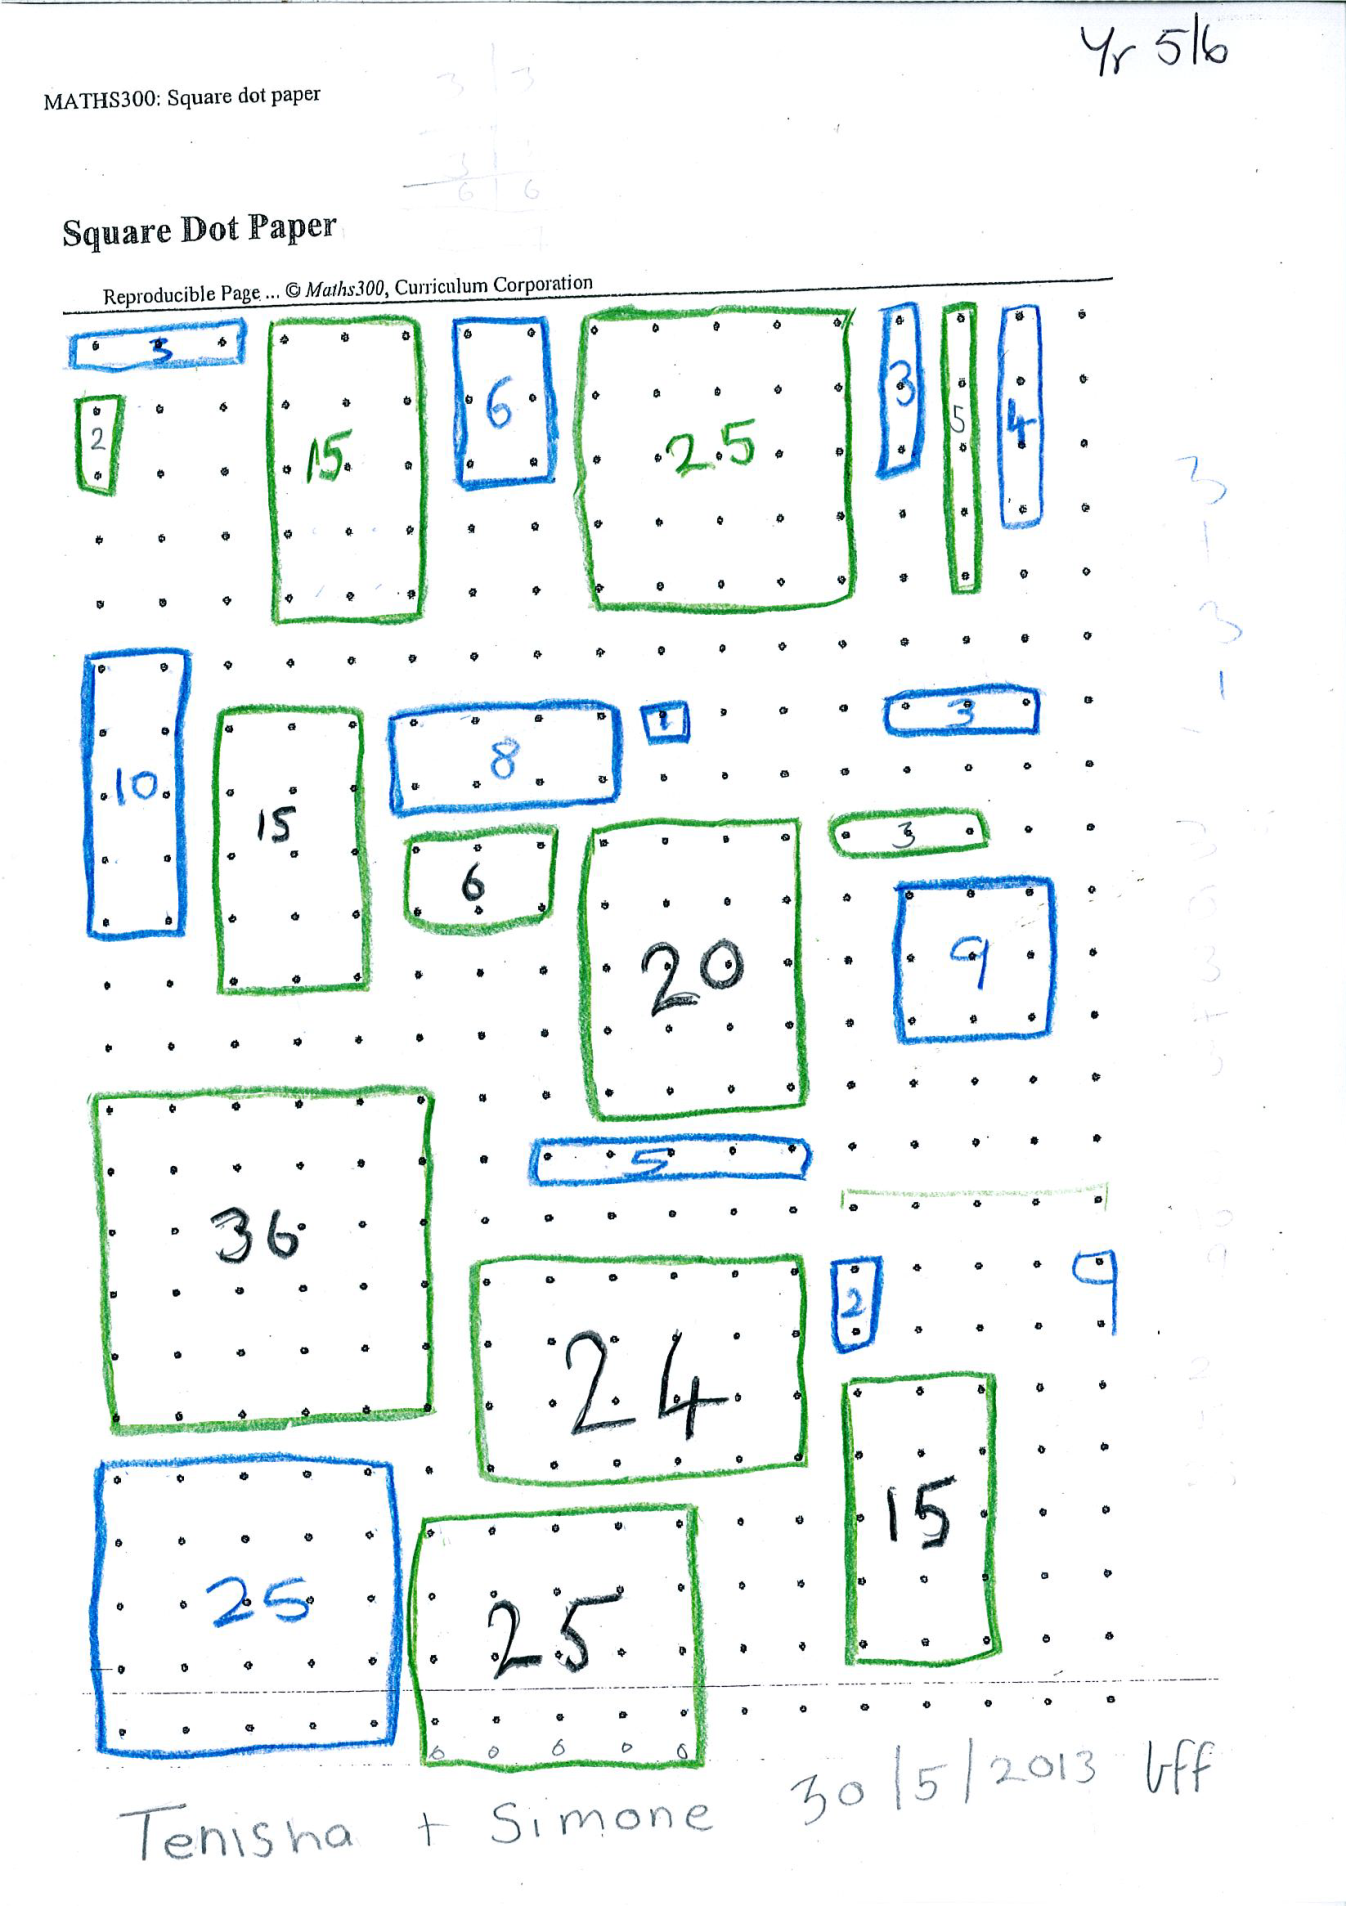 Yr 5/6
MATHS300: Square dot paper
3 3
3
6 6
Square Dot Paper
Reproducible Page ... © Maths300, Curriculum Corporation
3 15 6 25 3 5 4
2
3
1
3
1
10 15 8 1 3
6 20 3
9
36 5
24 2
15
25 25
Tenisha + Simone 30/5/2013 bff